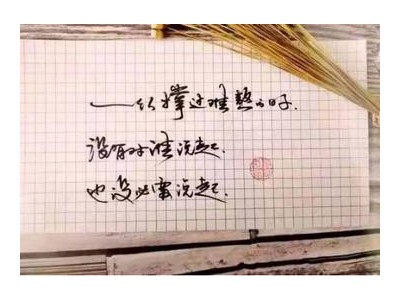 撑过难熬的日子.
没有对谁说起.
也没必需说起.